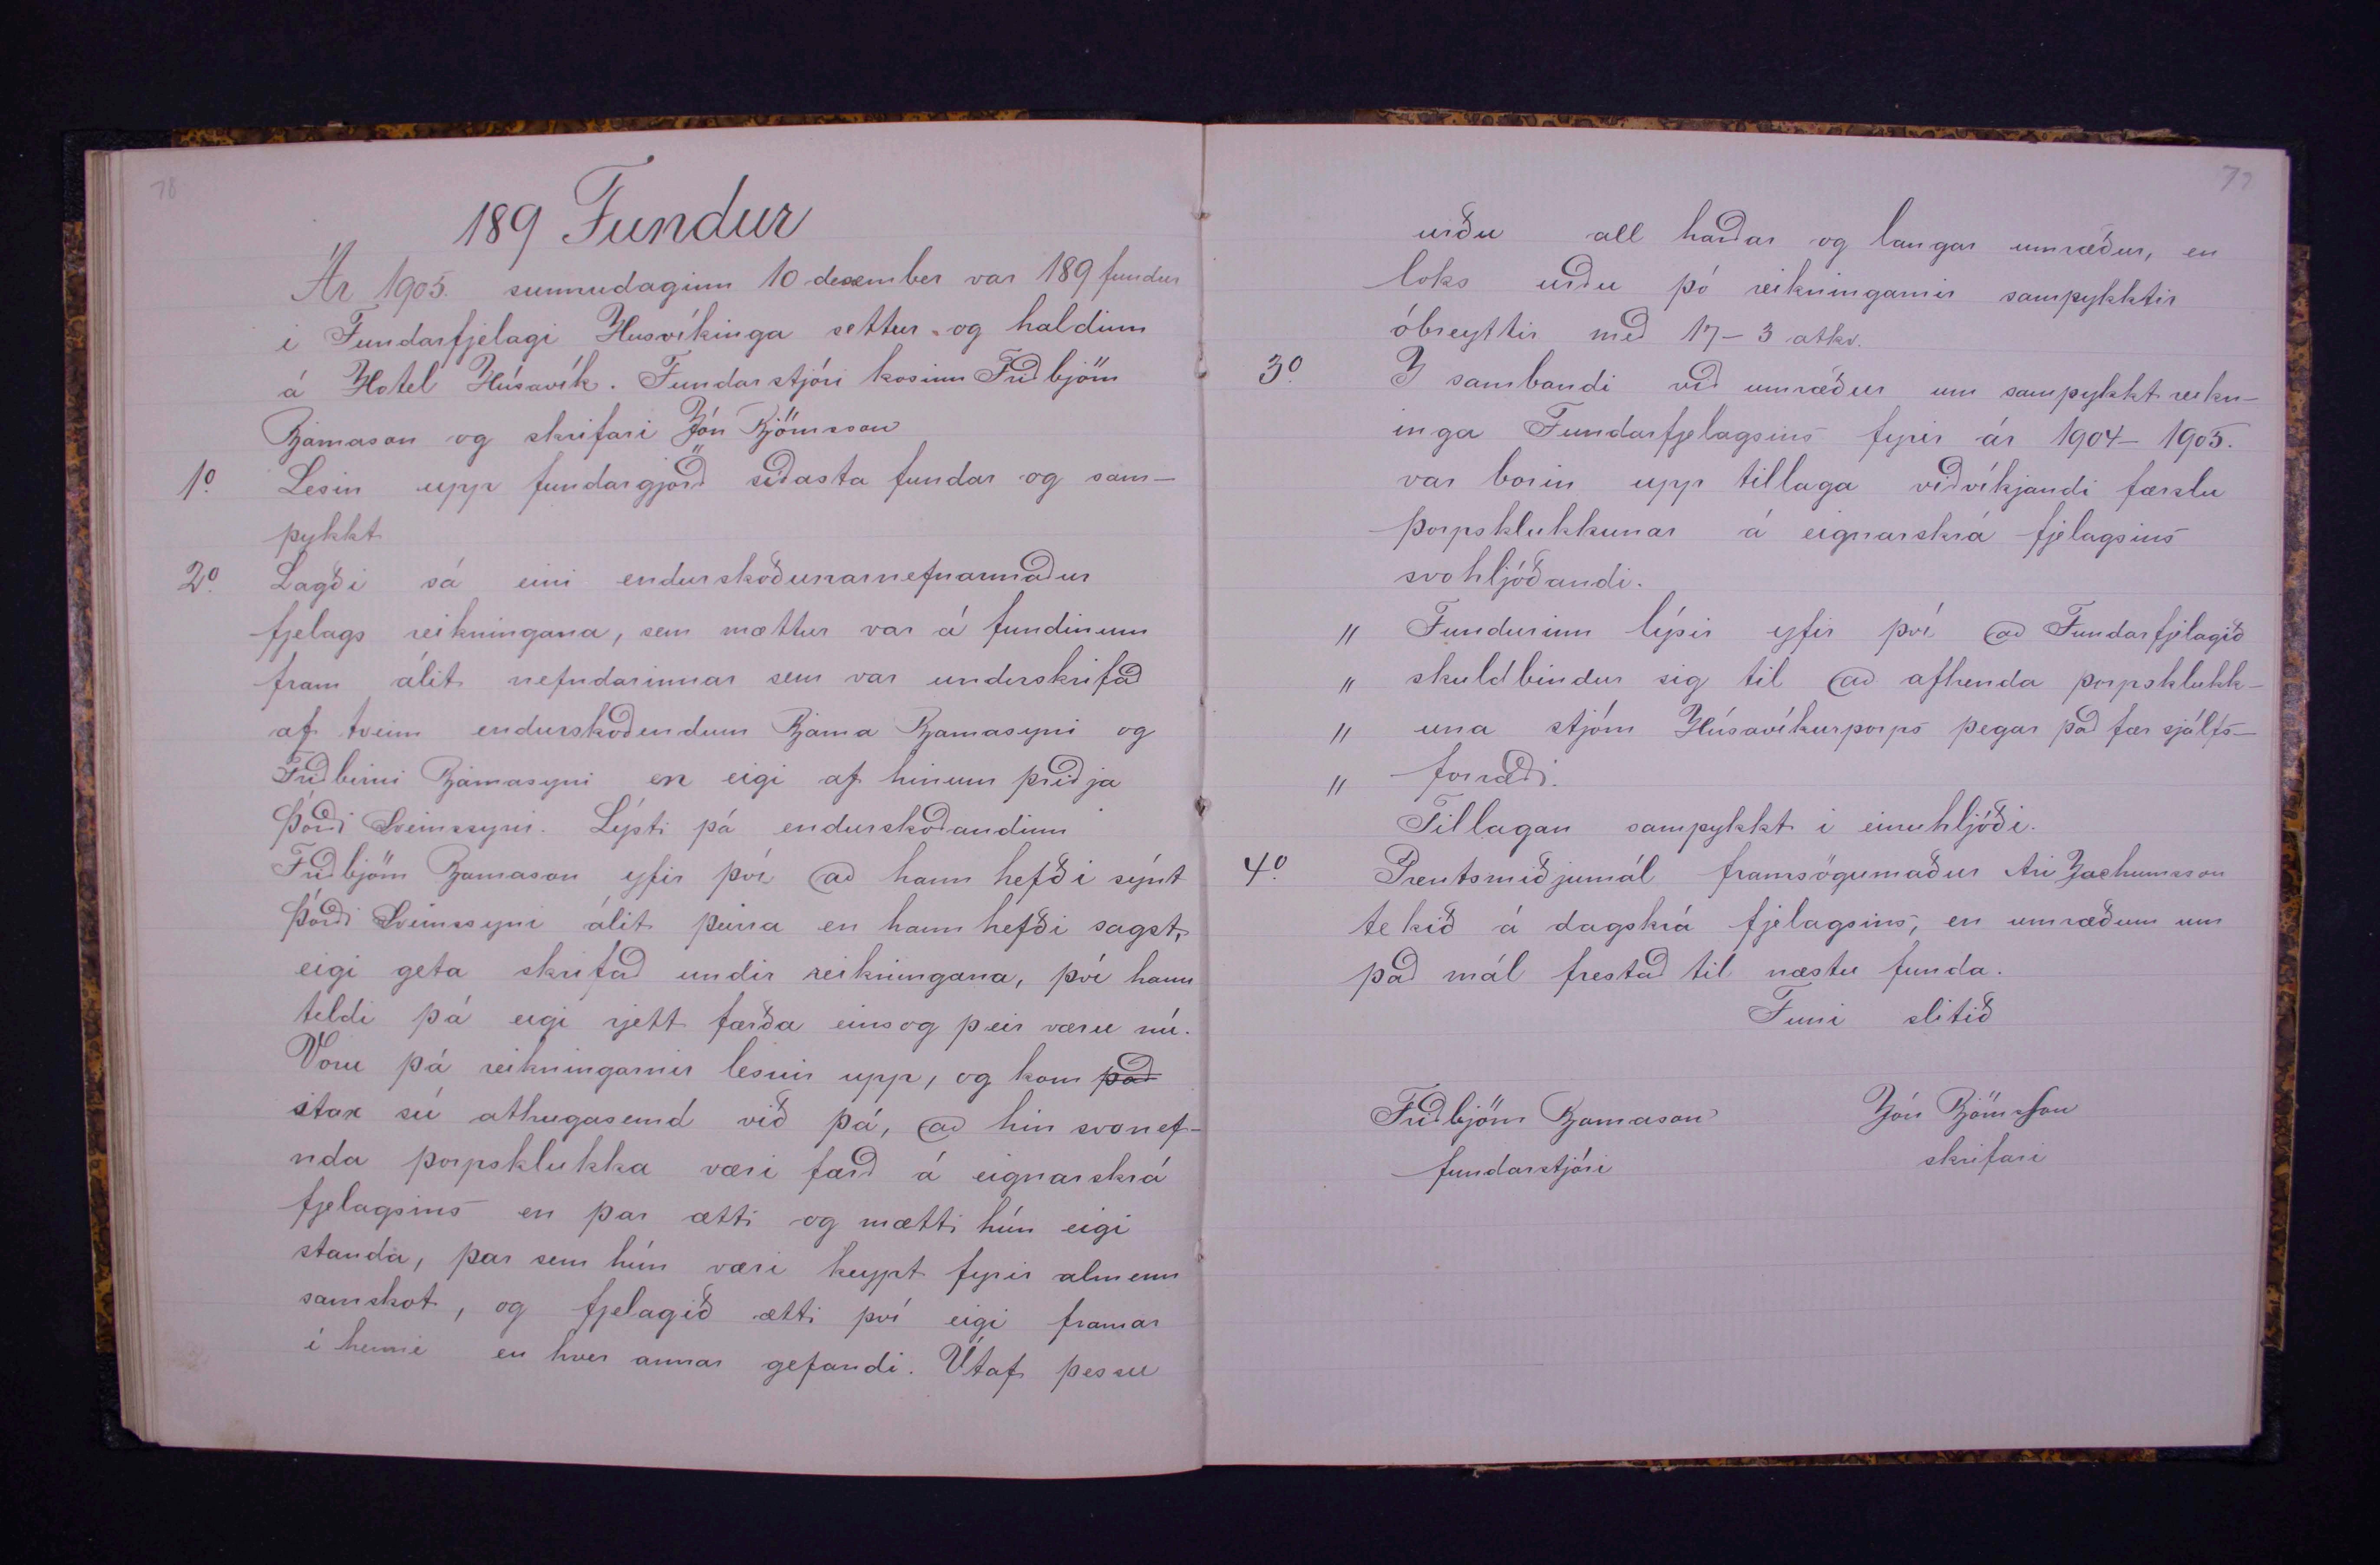 78
189 Fundur
Ár 1905. sunnudaginn 10 desember var 189 fundur
i Fundarfjelagi Husvíkinga settur og haldinn
á Hotel Húsavík. Fundarstjóri kosinn Friðbjörn
Bjarnason og skrifari Jón Björnsson
1º. Lesin upp fundargjörð siðasta fundar og sam-
þykkt
2º. Lagði sá eini endurskoðunarnefnarmaður
fjelags reikningana, sem mættur var á fundinum
fram álit nefndarinnar sem var underskrifað
af tveim endurskoðendum Bjarna Bjarnasyni og
Friðbirni Bjarnasyni en eigi af hinum þriðja
Þórði Sveinssyni. Lýsti þá endurskoðandinn
Friðbjörn Bjarnason yfir því að hann hefði sýnt
Þórði Sveinssyni álit þeirra en hann hefði sagst,
eigi geta skrifað undir reikningana, því hann
teldi þá eigi rjett færða einsog þeir væru nú.
Voru þá reikningarnir lesnir upp, og kom það
strax sú athugasemd við þá, að hin svonef-
nda þorpsklukka væri færð á eignarskrá
fjelagsins en þar ætti og mætti hún eigi
standa, þar sem hún væri keypt fyrir almenn
samskot, og fjelagið ætti því eigi framar
í henni en hver annar gefandi. Útaf þessu
79
urðu all harðar og langar umræður, en
loks urðu þó reikningarnir samþykktir
óbreyttir með 17-3 atkv.
3º. I sambandi við umræður um samþykkt reikn-
inga Fundarfjelagsins fyrir ár 1904-1905.
var borin upp tillaga viðvíkjandi færslu
þorpsklukkunar á eignarskrá fjelagsins
svohljóðandi.
" Fundurinn lýsir yfir því að Fundarfjelagið
" skuldbindur sig til að afhenda þorpsklukk-
" una stjórn Húsavíkurþorps þegar það fær sjálfs-
" forræði.
Tillagan samþykkt i einuhljóði.
4º. Prentsmiðjumál framsögumaður Ari Jochumsson
tekið á dagskrá fjelagsins, en umræðum um
það mál frestað til næstu funda.
Funi slitið
Friðbjörn Bjarnason Jón Björnsson
fundarstjóri skrifari